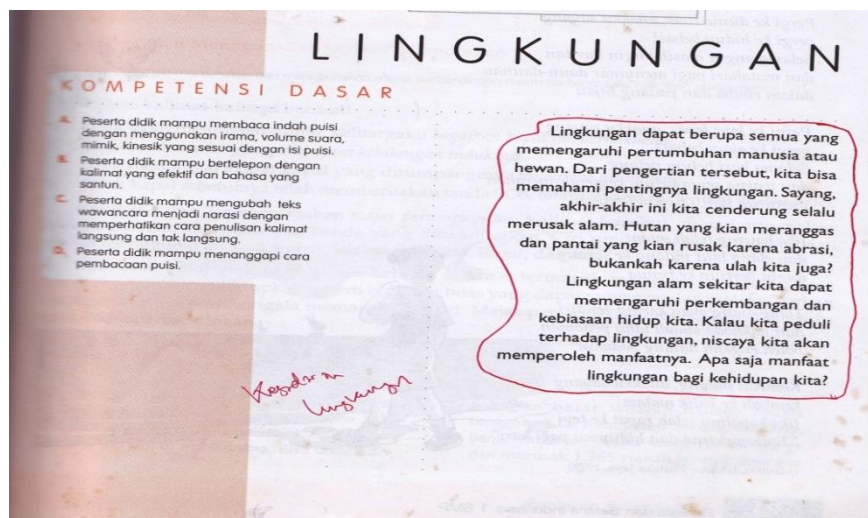 LINGKUNGAN
KOMPETENSI DASAR
A. Peserta didik mampu membaca indah puisi
dengan menggunakan irama, volume suara,
mimik, kinesik yang sesuai dengan isi puisi.
B. Peserta didik mampu bertelepon dengan
kalimat yang efektif dan bahasa yang
santun.
C. Peserta didik mampu mengubah teks
wawancara menjadi narasi dengan
memperhatikan cara penulisan kalimat
langsung dan tak langsung.
D. Peserta didik mampu menanggapi cara
pembacaan puisi.
Lingkungan dapat berupa semua yang
memengaruhi pertumbuhan manusia atau
hewan. Dari pengertian tersebut, kita bisa
memahami pentingnya lingkungan. Sayang,
akhir-akhir ini kita cenderung selalu
merusak alam. Hutan yang kian meranggas
dan pantai yang kian rusak karena abrasi,
bukankah karena ulah kita juga?
Lingkungan alam sekitar kita dapat
memengaruhi perkembangan dan
kebiasaan hidup kita. Kalau kita peduli
terhadap lingkungan, niscaya kita akan
memperoleh manfaatnya. Apa saja manfaat
lingkungan bagi kehidupan kita?
Kesadaran
lingkungan